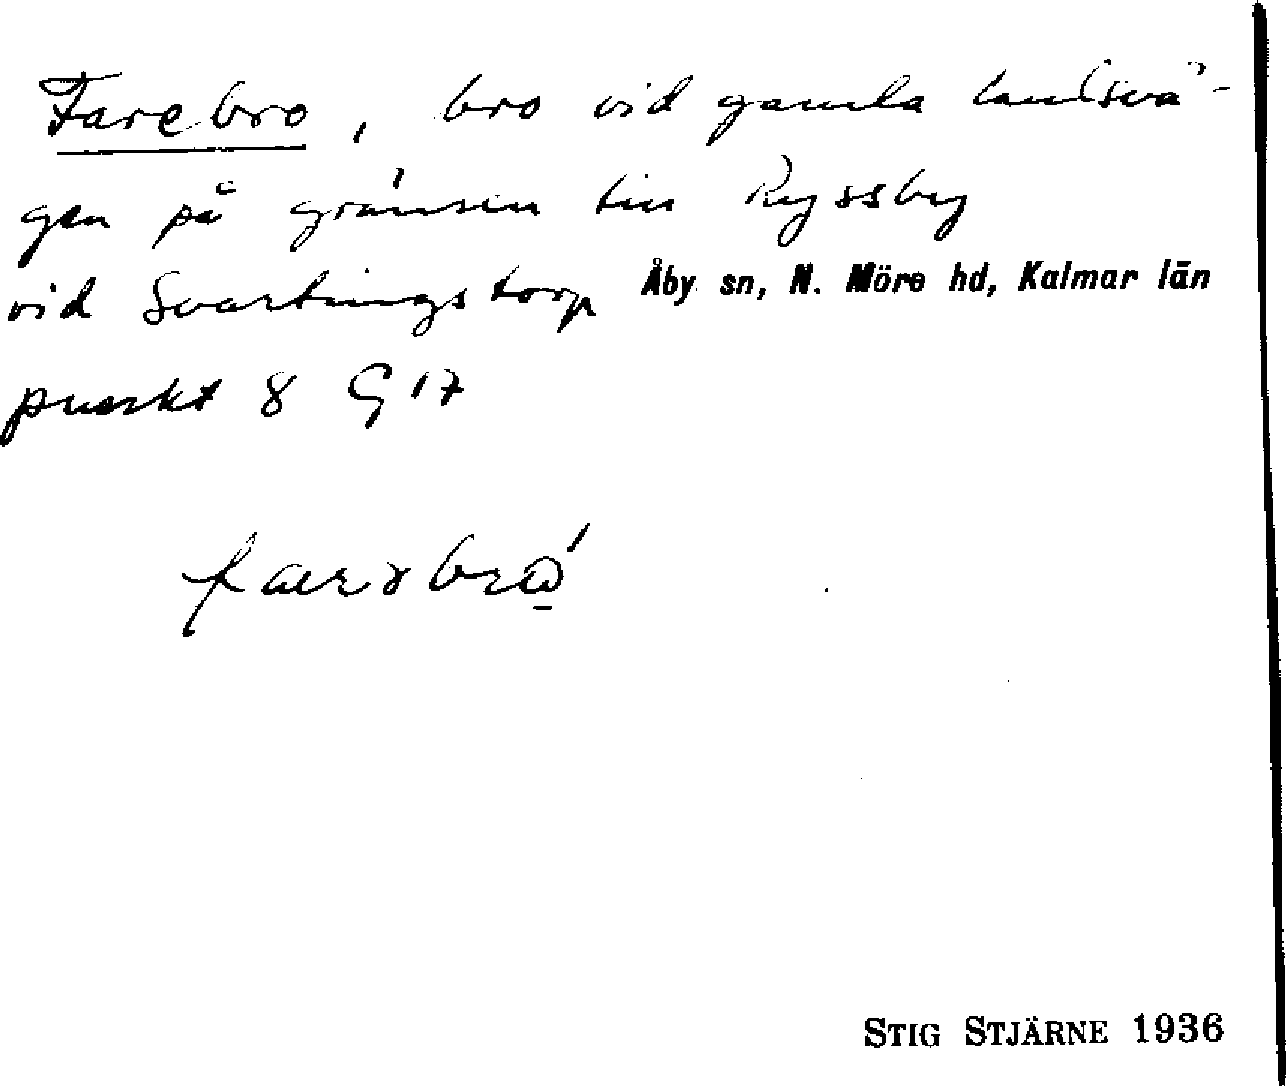 Farebro, bro vid gamla landsvä-
gen på gränsen till Ryssby
vid Svartingstorp Åby sn, N. Möre hd, Kalmar län
punkt 8 G 17
STIG STJÄRNE 1936